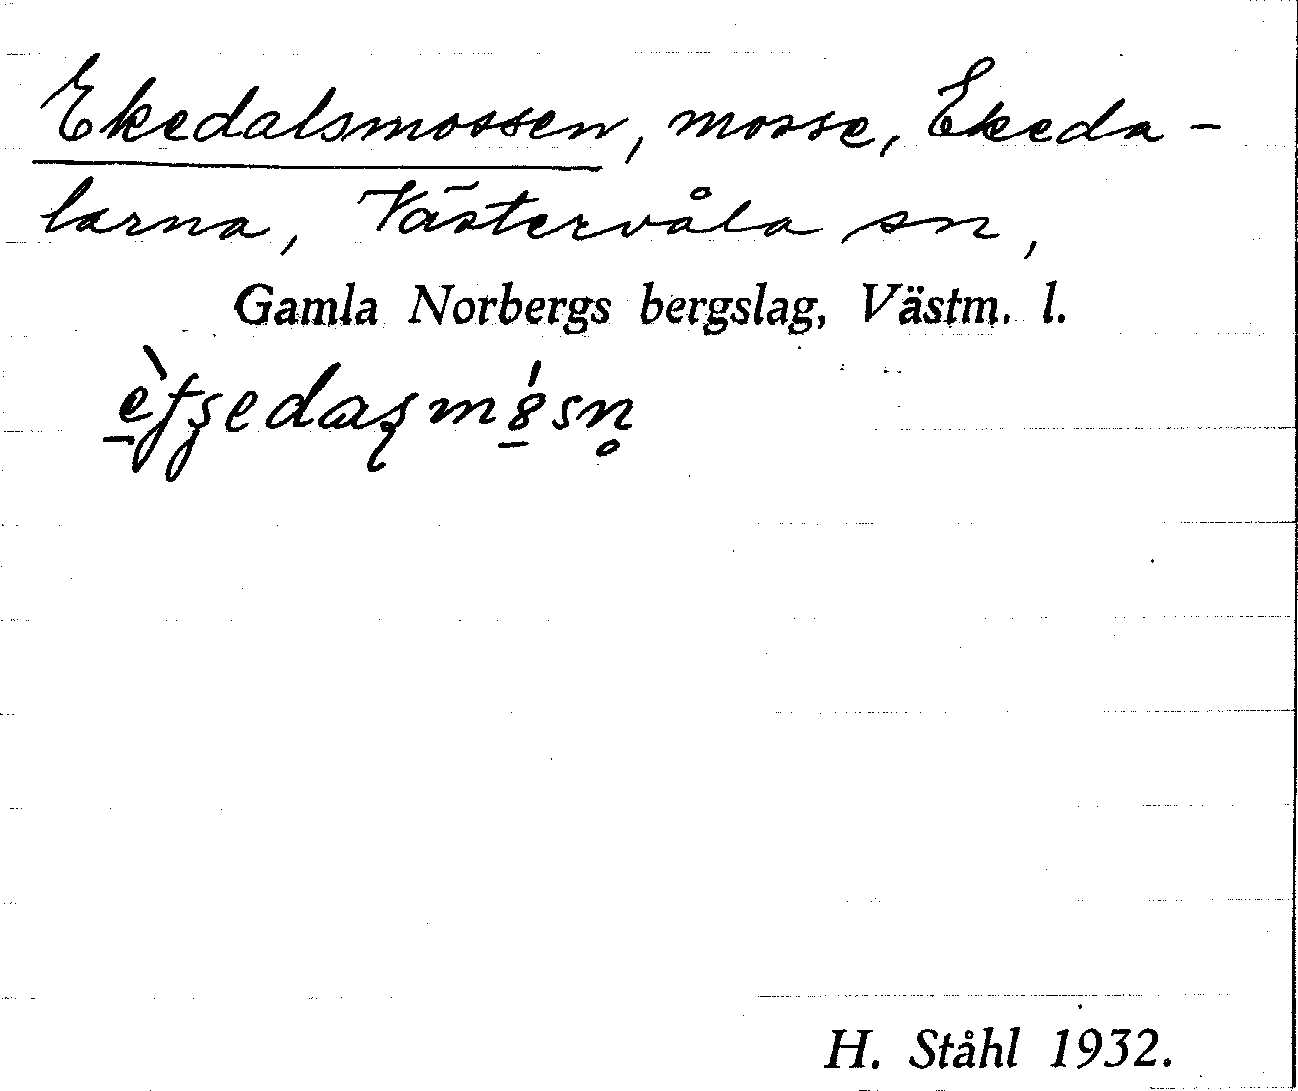 Ekedalsmossen, mosse, Ekeda-
larna, Västervåla sn,
Gamla Norbergs bergslag, Västm. l.
H. Ståhl 1932.